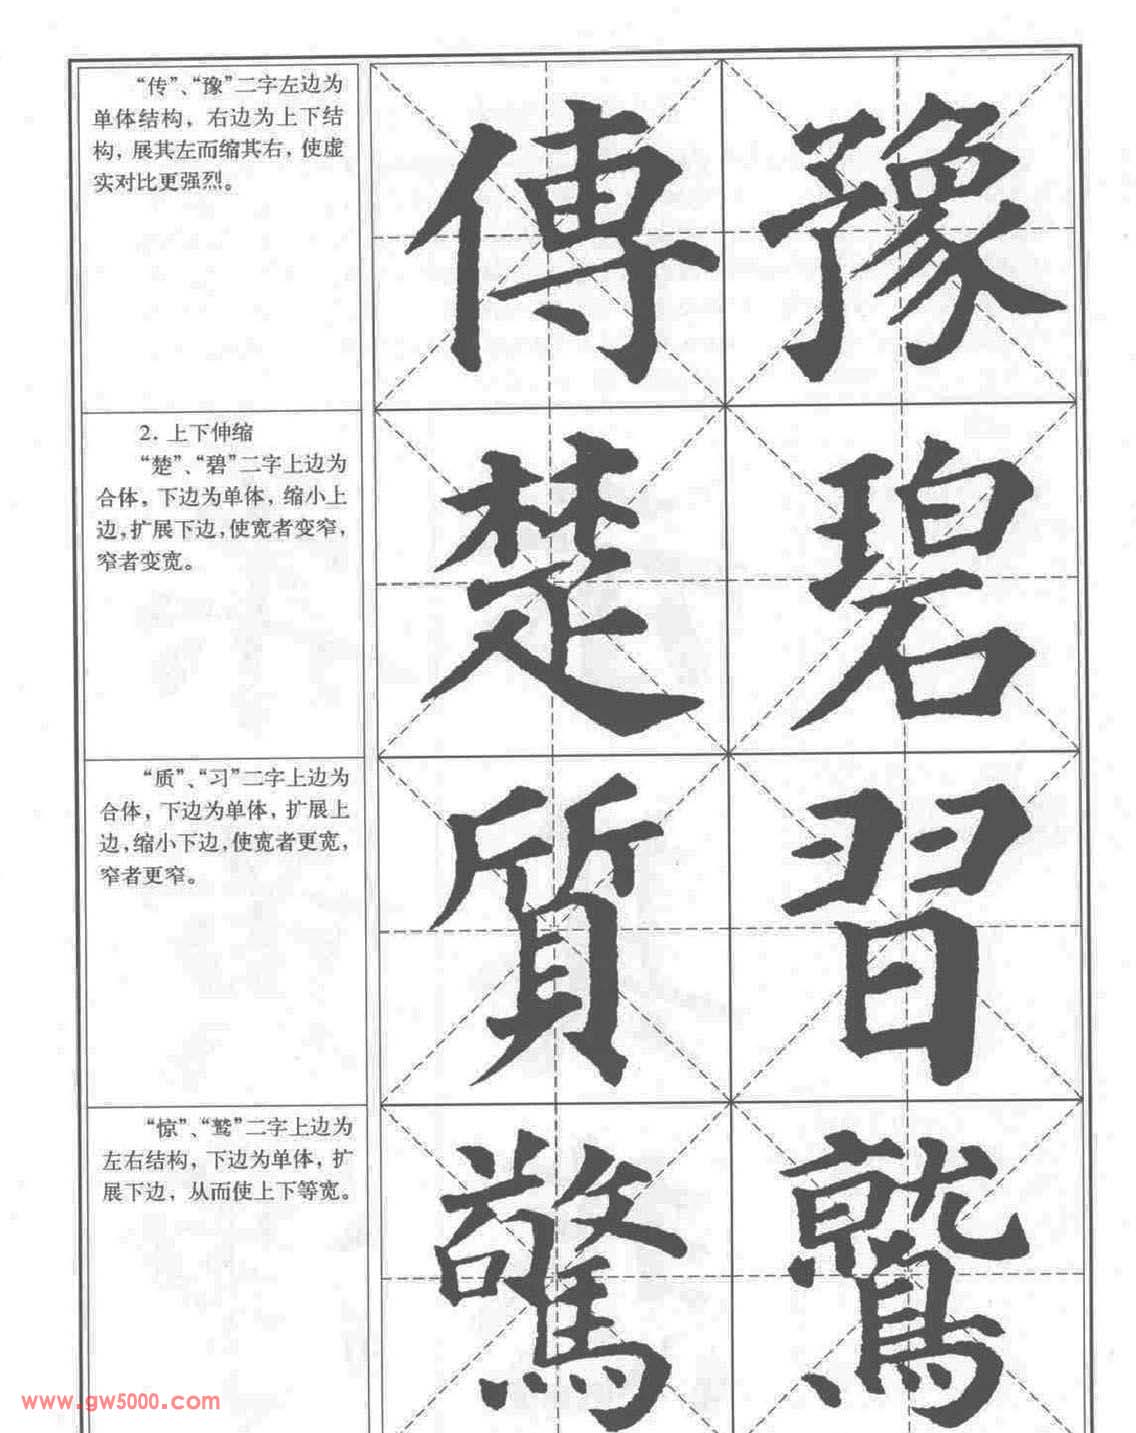 “传”、“豫”二字左边为
单体结构，右边为上下结
构，展其左而缩其右，使虚
实对比更强烈。
傳 豫
2. 上下伸缩
“楚”、“碧”二字上边为
合体，下边为单体，缩小上
边，扩展下边，使宽者变窄，
窄者变宽。
楚 碧
“质”、“习”二字上边为
合体，下边为单体，扩展上
边，缩小下边，使宽者更宽，
窄者更窄。
質 習
“惊”、“鹫”二字上边为
左右结构，下边为单体，扩
展下边，从而使上下等宽。
驚 鷲
www.gw5000.com